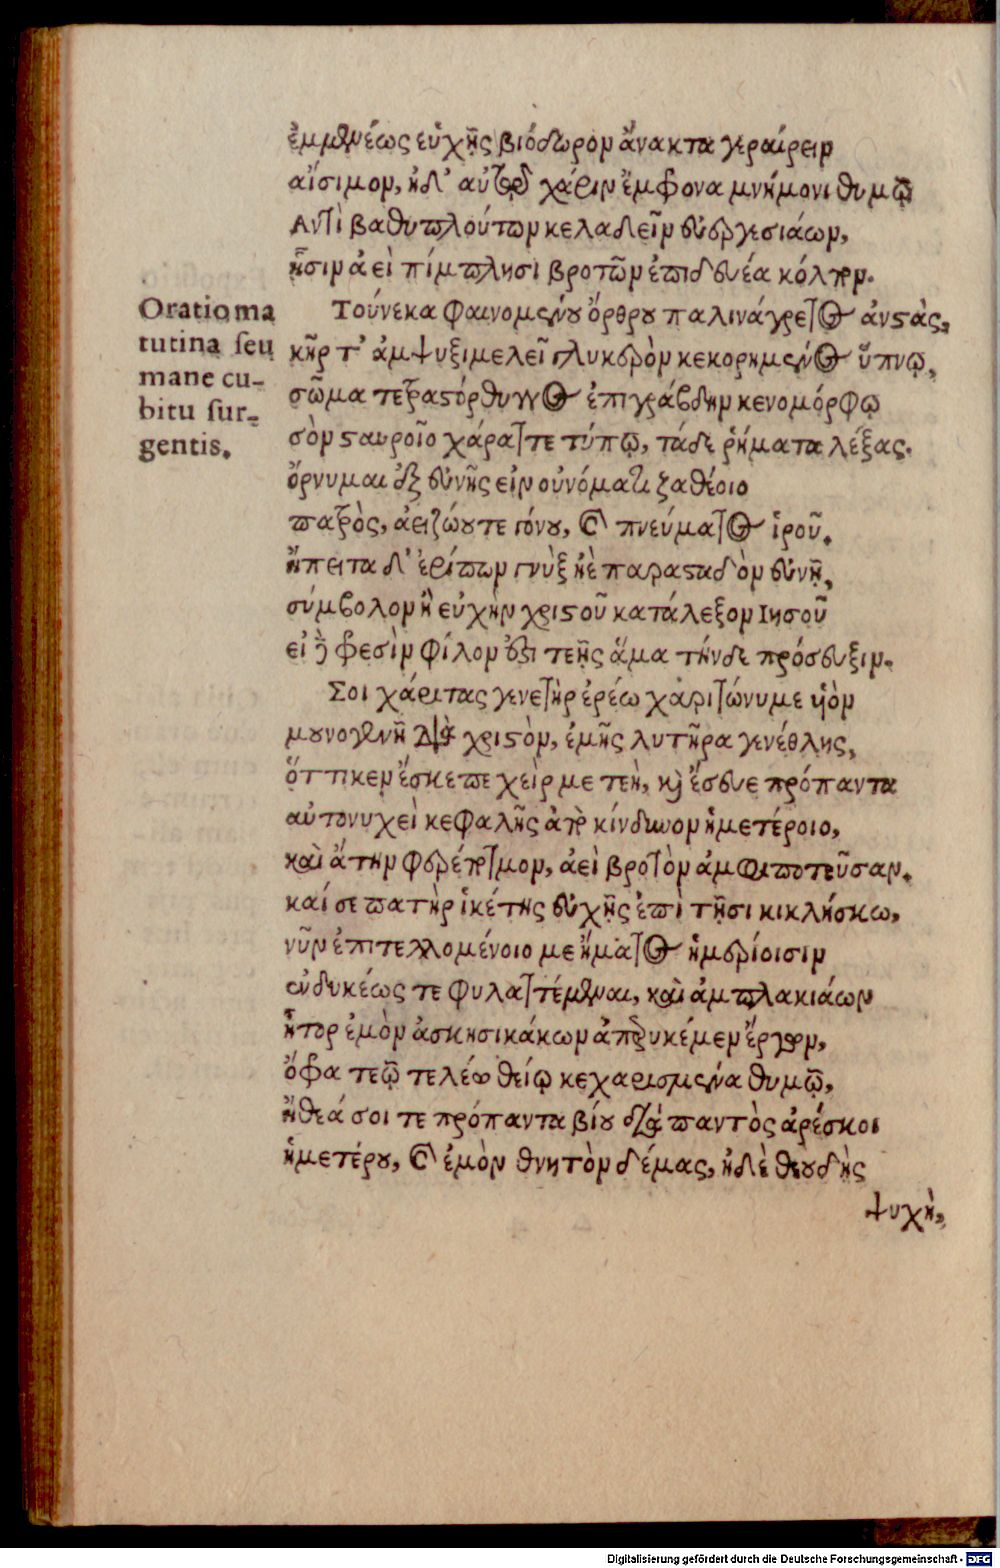 ἐμμενέως εὐχῆς βιόδωρον ἄνακτα γεραίρειν
αἴσιμον, ἠδ' αὐτοῦ χάριν ἔμφρονα μνήμονι θυμῷ
Ἀντὶ βαθυπλούτων κελαδεῖν εὐεργεσιάων,
ᾗσιν ἀεὶ πίμπλησι βροτῶν ἐπιδευέα κόλπον.
Oratio ma
tutina seu
mane cu-
bitu sur-
gentis.
Τούνεκα φαινομένου ὄρθρου παλινάγρετος ἀνστὰς,
κῆρ τ' ἀμψυξιμελεῖ γλυκερὸν κεκορημένος ὕπνῳ,
σῶμα τετραστόρθυγγος ἐπιγράβδην κενομόρφῳ
σὸν σταυροῖο χάραττε τύπῳ, τάδε ῥήματα λέξας.
ὄρνυμαι ἐξ εὐνῆς εἰν οὐνόματι ζαθέοιο
πατρὸς, ἀειζώου τε γόνου, καὶ πνεύματος ἱροῦ.
ἤπειτα δ' ἐρίπων γνὺξ ἠὲ παρασταδὸν εὐνῇ,
σύμβολον ἢ εὐχὴν χριστοῦ κατάλεξον Ιησοῦ
εἰ δὲ φρεσὶν φίλον ἐστι τεῇς ἅμα τήνδε πρόσευξιν.
Σοι χάριτας γενετὴρ ἐρέω χαριτώνυμε υἱὸν
μουνογενῆ διὰ χριστὸν, ἐμῆς λυτῆρα γενέθλης,
ὅττι κεν ἔσκεπε χεὶρ με τεὴ, καὶ ἔσευε πρόπαντα
αὐτονυχεὶ κεφαλῆς ἀπὸ κίνδυνον ἡμετέροιο,
καὶ ἄτην φερέποτμον, ἀεὶ βροτὸν ἀμφιποτεῦσαν.
καί σε πατὴρ ἱκέτης εὐχῇς ἐπὶ τῇσι κικλήσκω,
νῦν ἐπιτελλομένοιο με ἤματος ἡμερίοισιν
ἐνδυκέως τε φυλαττέμεναι, καὶ ἀμπλακιάων
ἦτορ ἐμὸν ἀσκησικάκων ἀπερυκέμεν ἔργων,
ὄφρα τεῷ τελέω θείῳ κεχαρισμένα θυμῷ,
ἤθεά σοι τε πρόπαντα βίου διὰ παντὸς ἀρέσκοι
ἡμετέρου, καὶ ἐμὸν θνητὸν δέμας, ἠδὲ θεουδὴς
ψυχὴ,
Digitalisierung gefördert durch die Deutsche Forschungsgemeinschaft - DFG